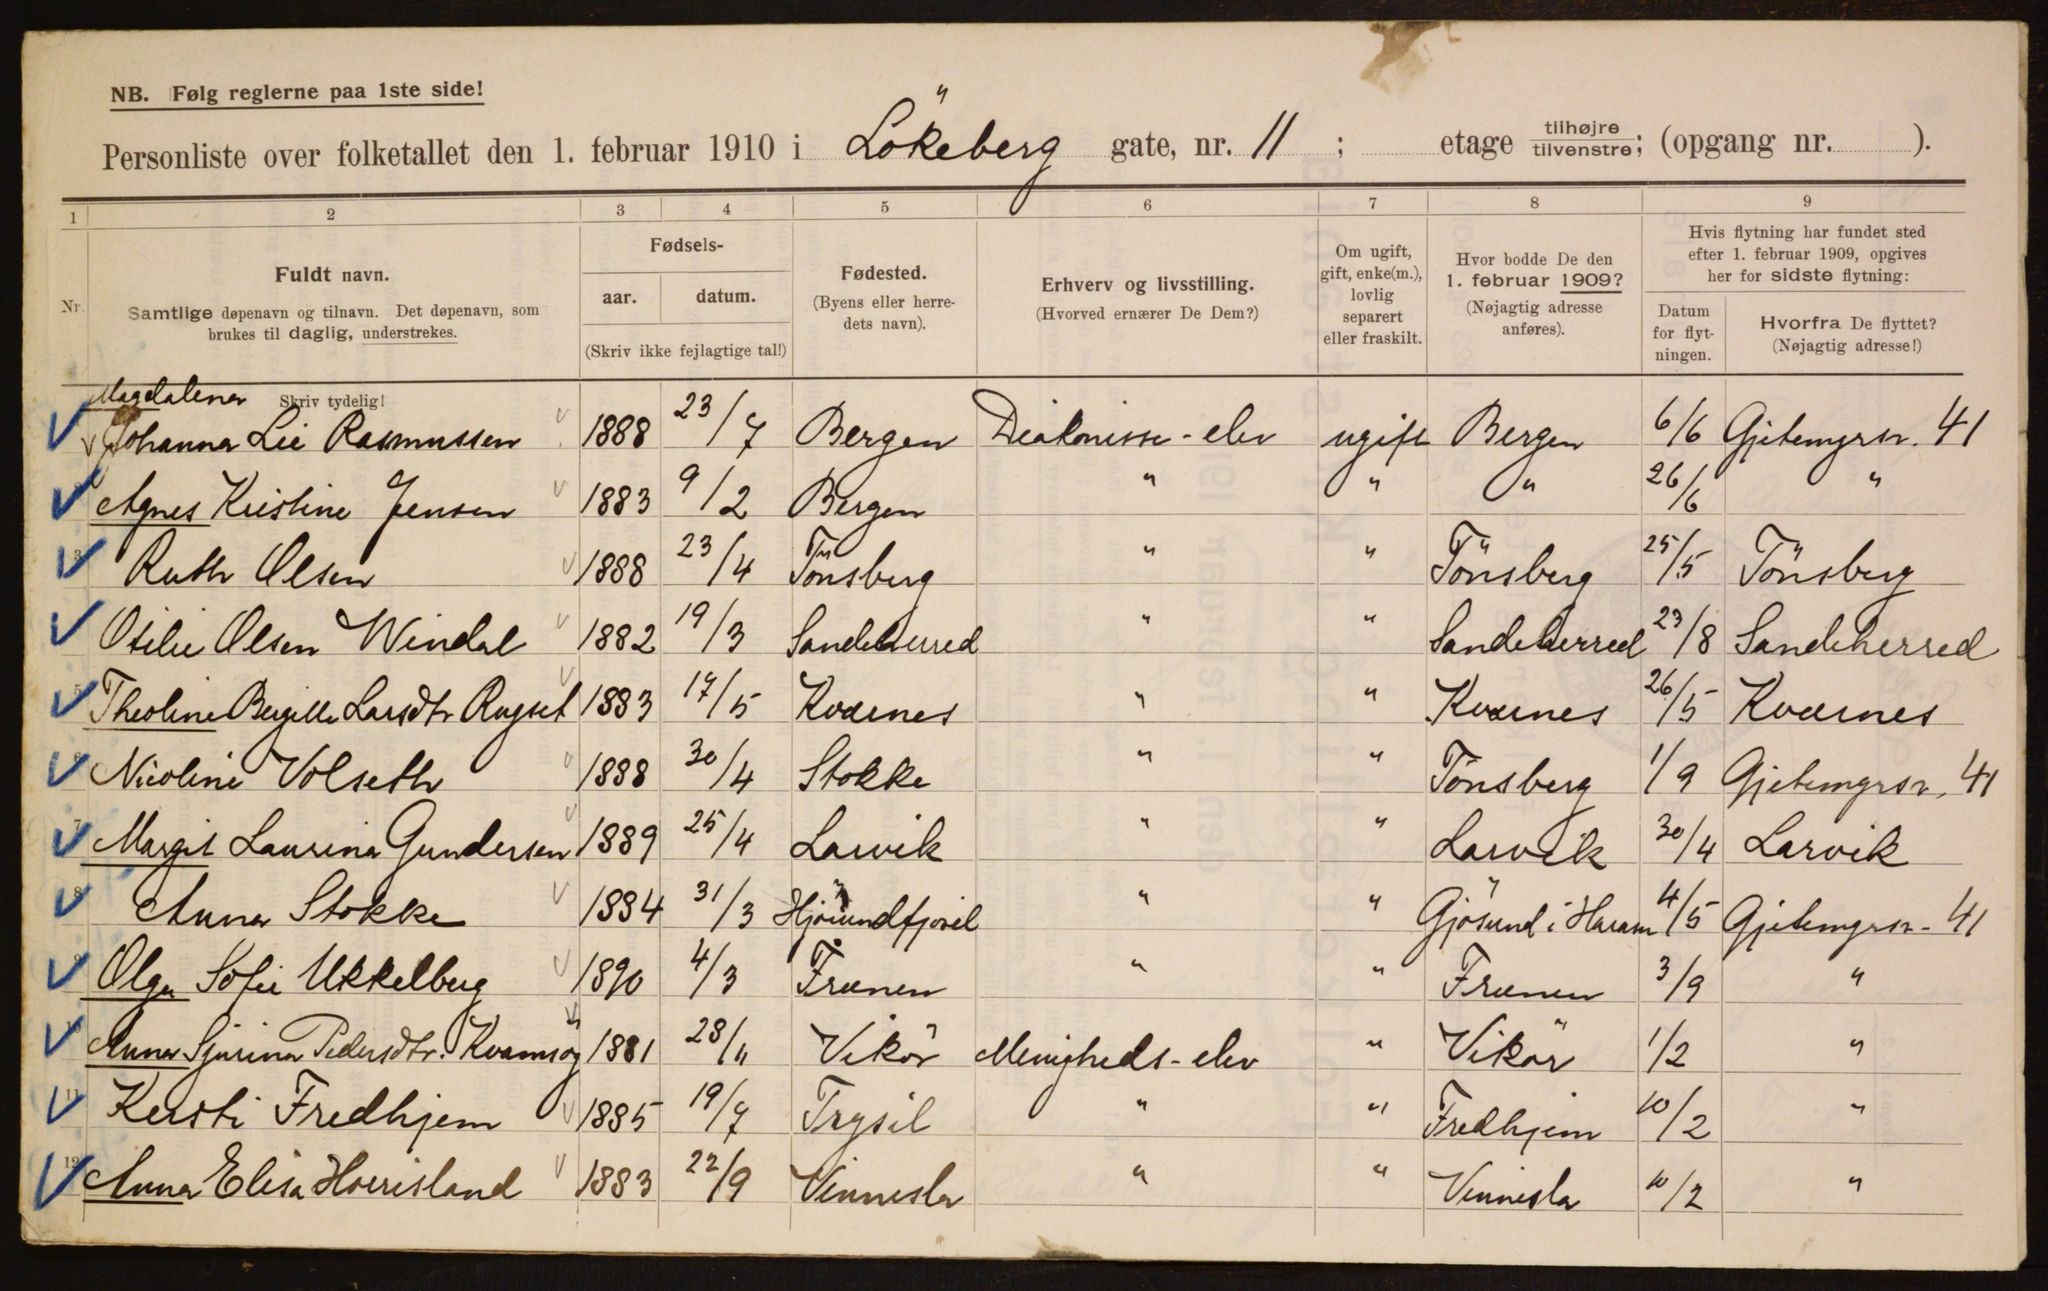 NB. Følg reglerne paa 1ste side!
Personliste over folketallet den 1. februar 1910 i Lökeberg gate, nr. 11 ; etage tilhøjre tilvenstre; (opgang nr. ).
1 2 3 4 5 6 7 8 9
Nr.
Fuldt navn.
Samtlige døpenavn og tilnavn. Det døpenavn, som
brukes til daglig, understrekes.
Skriv tydelig!
Fødsels-
aar. datum.
(Skriv ikke fejlagtige tal!)
Fødested.
(Byens eller herre-
dets navn).
Erhverv og livsstilling.
(Hvorved ernærer De Dem?)
Om ugift,
gift, enke(m.),
lovlig
separert
eller fraskilt.
Hvor bodde De den
1. februar 1909?
(Nøjagtig adresse
anføres).
Hvis flytning har fundet sted
efter 1. februar 1909, opgives
her for sidste flytning:
Datum
for flyt-
ningen.
Hvorfra De flyttet?
(Nøjagtig adresse!)
Magdalena
Johanna Lie Rasmussen 1888 23/7 Bergen Diakonisse-elev ugift Bergen 6/6 Gjetemyrsv. 41
Agnes Kristine Jensen 1883 9/2 Bergen " " " 26/6 "
3 Ruth Olsen 1888 23/4 Tönsberg " " Tönsberg 25/5 Tönsberg
Otilie Olsen Windal 1882 19/3 Sandeherred " " Sandeherred 23/8 Sandeherred
5 Theoline Bergitte Larsdtr Rugset 1883 17/5 Kværnes " " Kværnes 26/5 Kværnes
6 Nicoline Volseth 1888 30/4 Stokke " " Tönsberg 1/9 Gjetemyrsv. 41
7 Margit Laurina Gundersen 1889 25/4 Larvik " " Larvik 30/4 Larvik
8 Anna Stokke 1884 31/3 Hjörundfjord " " Gjösund i Haram 4/5 Gjetemyrsv. 41
9 Olga Sofie Ukkelberg 1890 4/3 Frænen " " Frænen 3/9 "
Anna Sjurina Pedersdtr. Kvamsøy 1881 28/11 Vikör Menigheds-elev " Vikör 1/2 "
11 Kersti Fredhjem 1885 19/7 Trysil " " Fredhjem 10/2 "
12 Anna Elisa 1883 22/9 Vennesla " " Vennesla 10/2 "